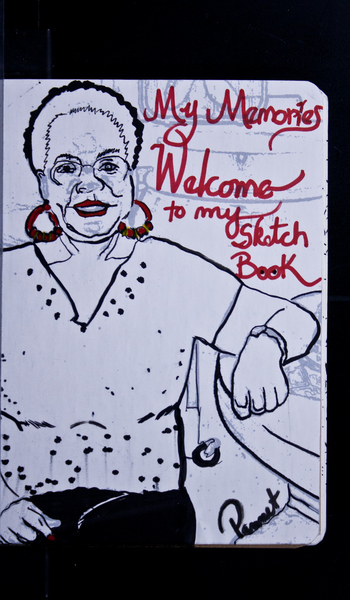 My Memories
Welcome
to my
Sketch
Book